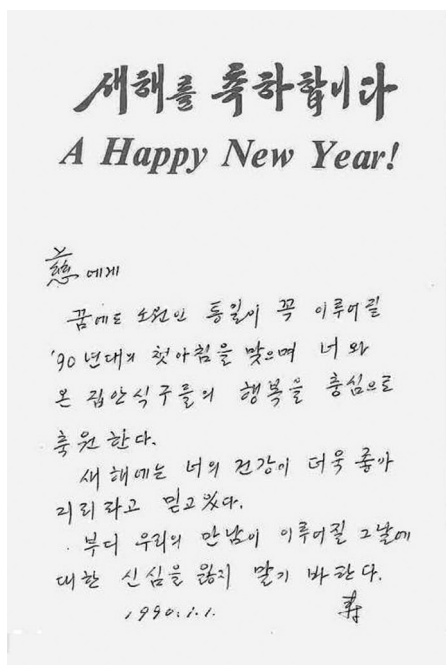 새해를 축하합니다
A Happy New Year!
慈에게
꿈에도 소원인 통일이 꼭 이루어질
'90년대의 첫아침을 맞으며 너와
온 집안식구들의 행복을 충심으로
축원한다.
새해에는 너의 건강이 더욱 좋아
지리라고 믿고있다.
부디 우리의 만남이 이루어질 그날에
대한 신심을 잃지 말기 바란다.
1990.1.1. 壽